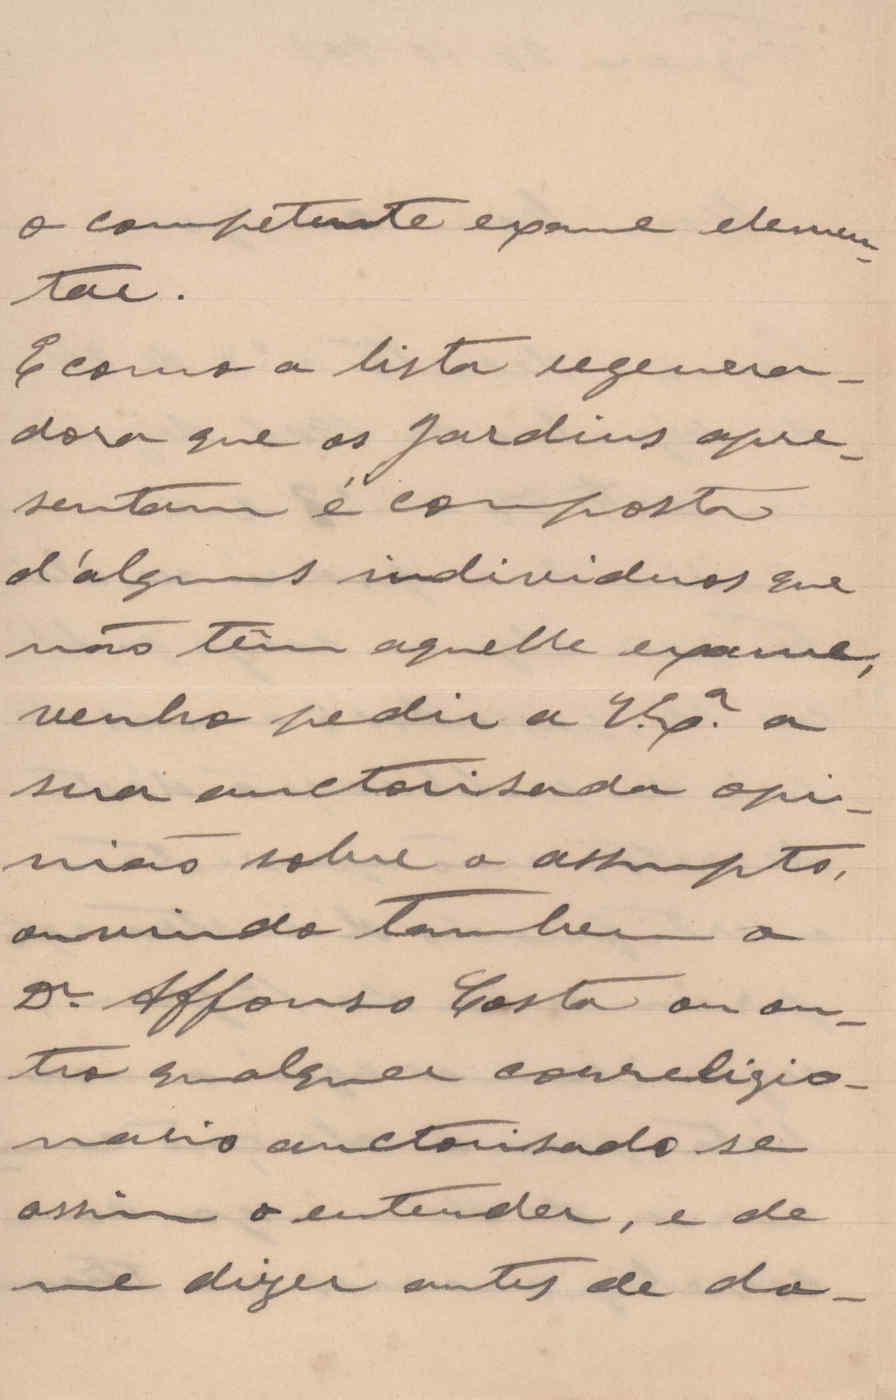 o competente exame elemen-
tar.
E como a lista regenera-
dora que os Jardins apre-
sentam é composta
d'alguns individuos que
não têm aquelle exame,
venho pedir a V. Ex.ª a
sua auctorisada opi-
nião sobre o assumpto,
ouvindo tambem o
Dr. Affonso Costa ou ou-
tro qualquer correligio-
nario auctorisado se
assim o entender, e de
me dizer antes de do-